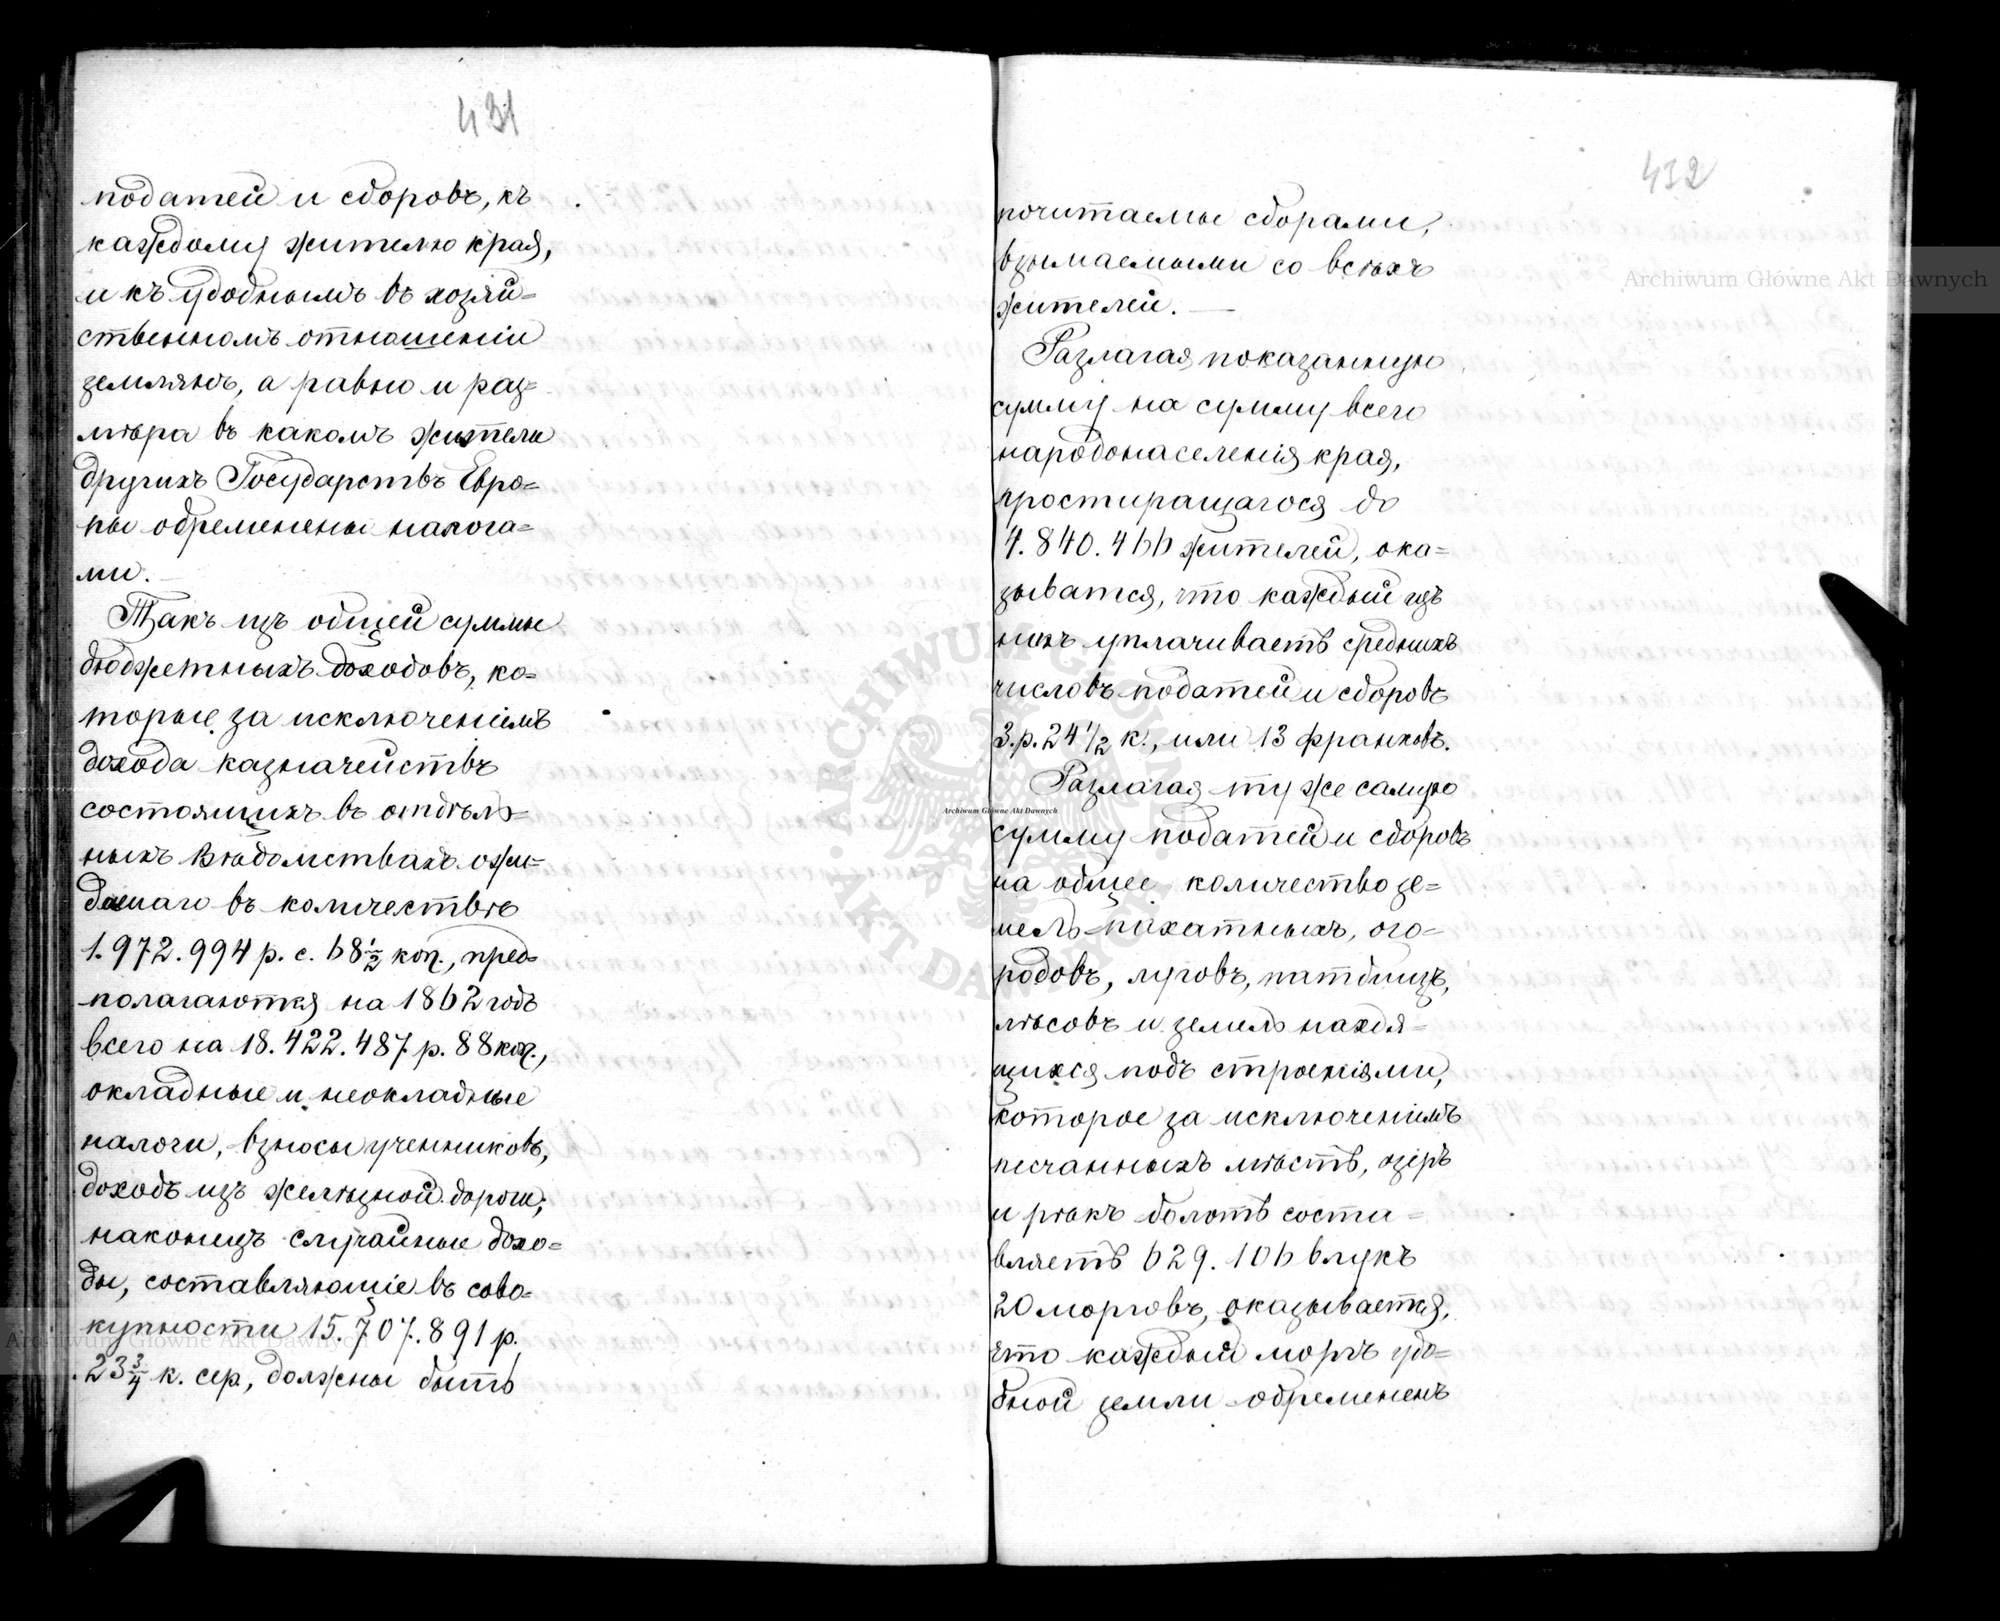 431
податей и сборовъ, къ
каждому жителю края,
и къ удобнымъ въ хозяй=
ственномъ отношеніи
землямъ, а равно и раз=
мѣра въ какомъ жители
другихъ Государствъ Евро=
пы обременены налога=
ми. —
Такъ изъ общей суммы
бюджетныхъ доходовъ, ко=
торые за исключеніемъ
дохода казначействъ
состоящихъ въ отдѣль=
ныхъ Вѣдомствахъ ожи=
даемаго въ количествѣ
1.972.994 р. с. 68½ коп., пред=
полагаются на 1862 годъ
всего на 18.422.487 р. 88 коп.,
окладные и неокладные
налоги, взносы учениковъ,
доходъ изъ желѣзной дороги,
наконецъ случайные дохо=
ды, составляющіе въ сово=
купности 15.707.891 р.
23¾ к. сер, должны быть
432
почитаемы сборами,
взымаемыми со всѣхъ
жителей. —
Разлагая показанную
сумму на сумму всего
народонаселенія края,
простиращагося до
4.840.466 жителей, ока=
зывается, что каждый изъ
нихъ уплачиваетъ среднихъ
числовъ податей и сборовъ
3.р.24½ к., или 13 франковъ.
Разлагая ту же самую
сумму податей и сборовъ
на общее количество зе=
мель пахатныхъ, ого=
родовъ, луговъ,
лѣсовъ и земель находя=
щихся подъ строеніями,
которое за исключеніемъ
песчанныхъ мѣстъ, озеръ
и рѣкъ болотъ соста=
вляетъ 629.106 влукъ
20 морговъ, оказывается,
что каждый моргъ удо=
бной земли обремененъ
Archiwum Główne Akt Dawnych
ARCHIWUM GŁÓWNE AKT DAWNYCH
Archiwum Główne Akt Dawnych
Archiwum Główne Akt Dawnych